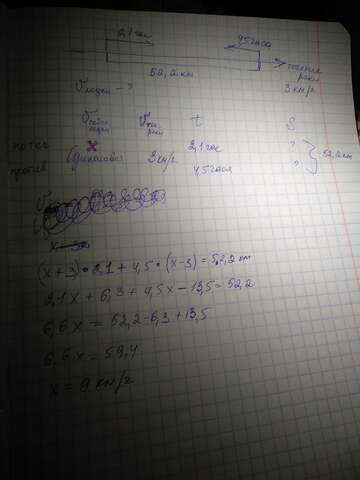 2,1 час 4,5 часа
течение реки
52,2 км
3 км/ч
V лодки - ?
V собс. лодки V теч. реки t S
по теч x 2,1 час ?
против Одинаковая 3 км/ч 4,5 часа ? 52,2 км
(x+3)·2,1+4,5·(x-3)=52,2 км
2,1x+6,3+4,5x-13,5=52,2
6,6x=52,2-6,3+13,5
6,6x=59,4
x=9 км/ч